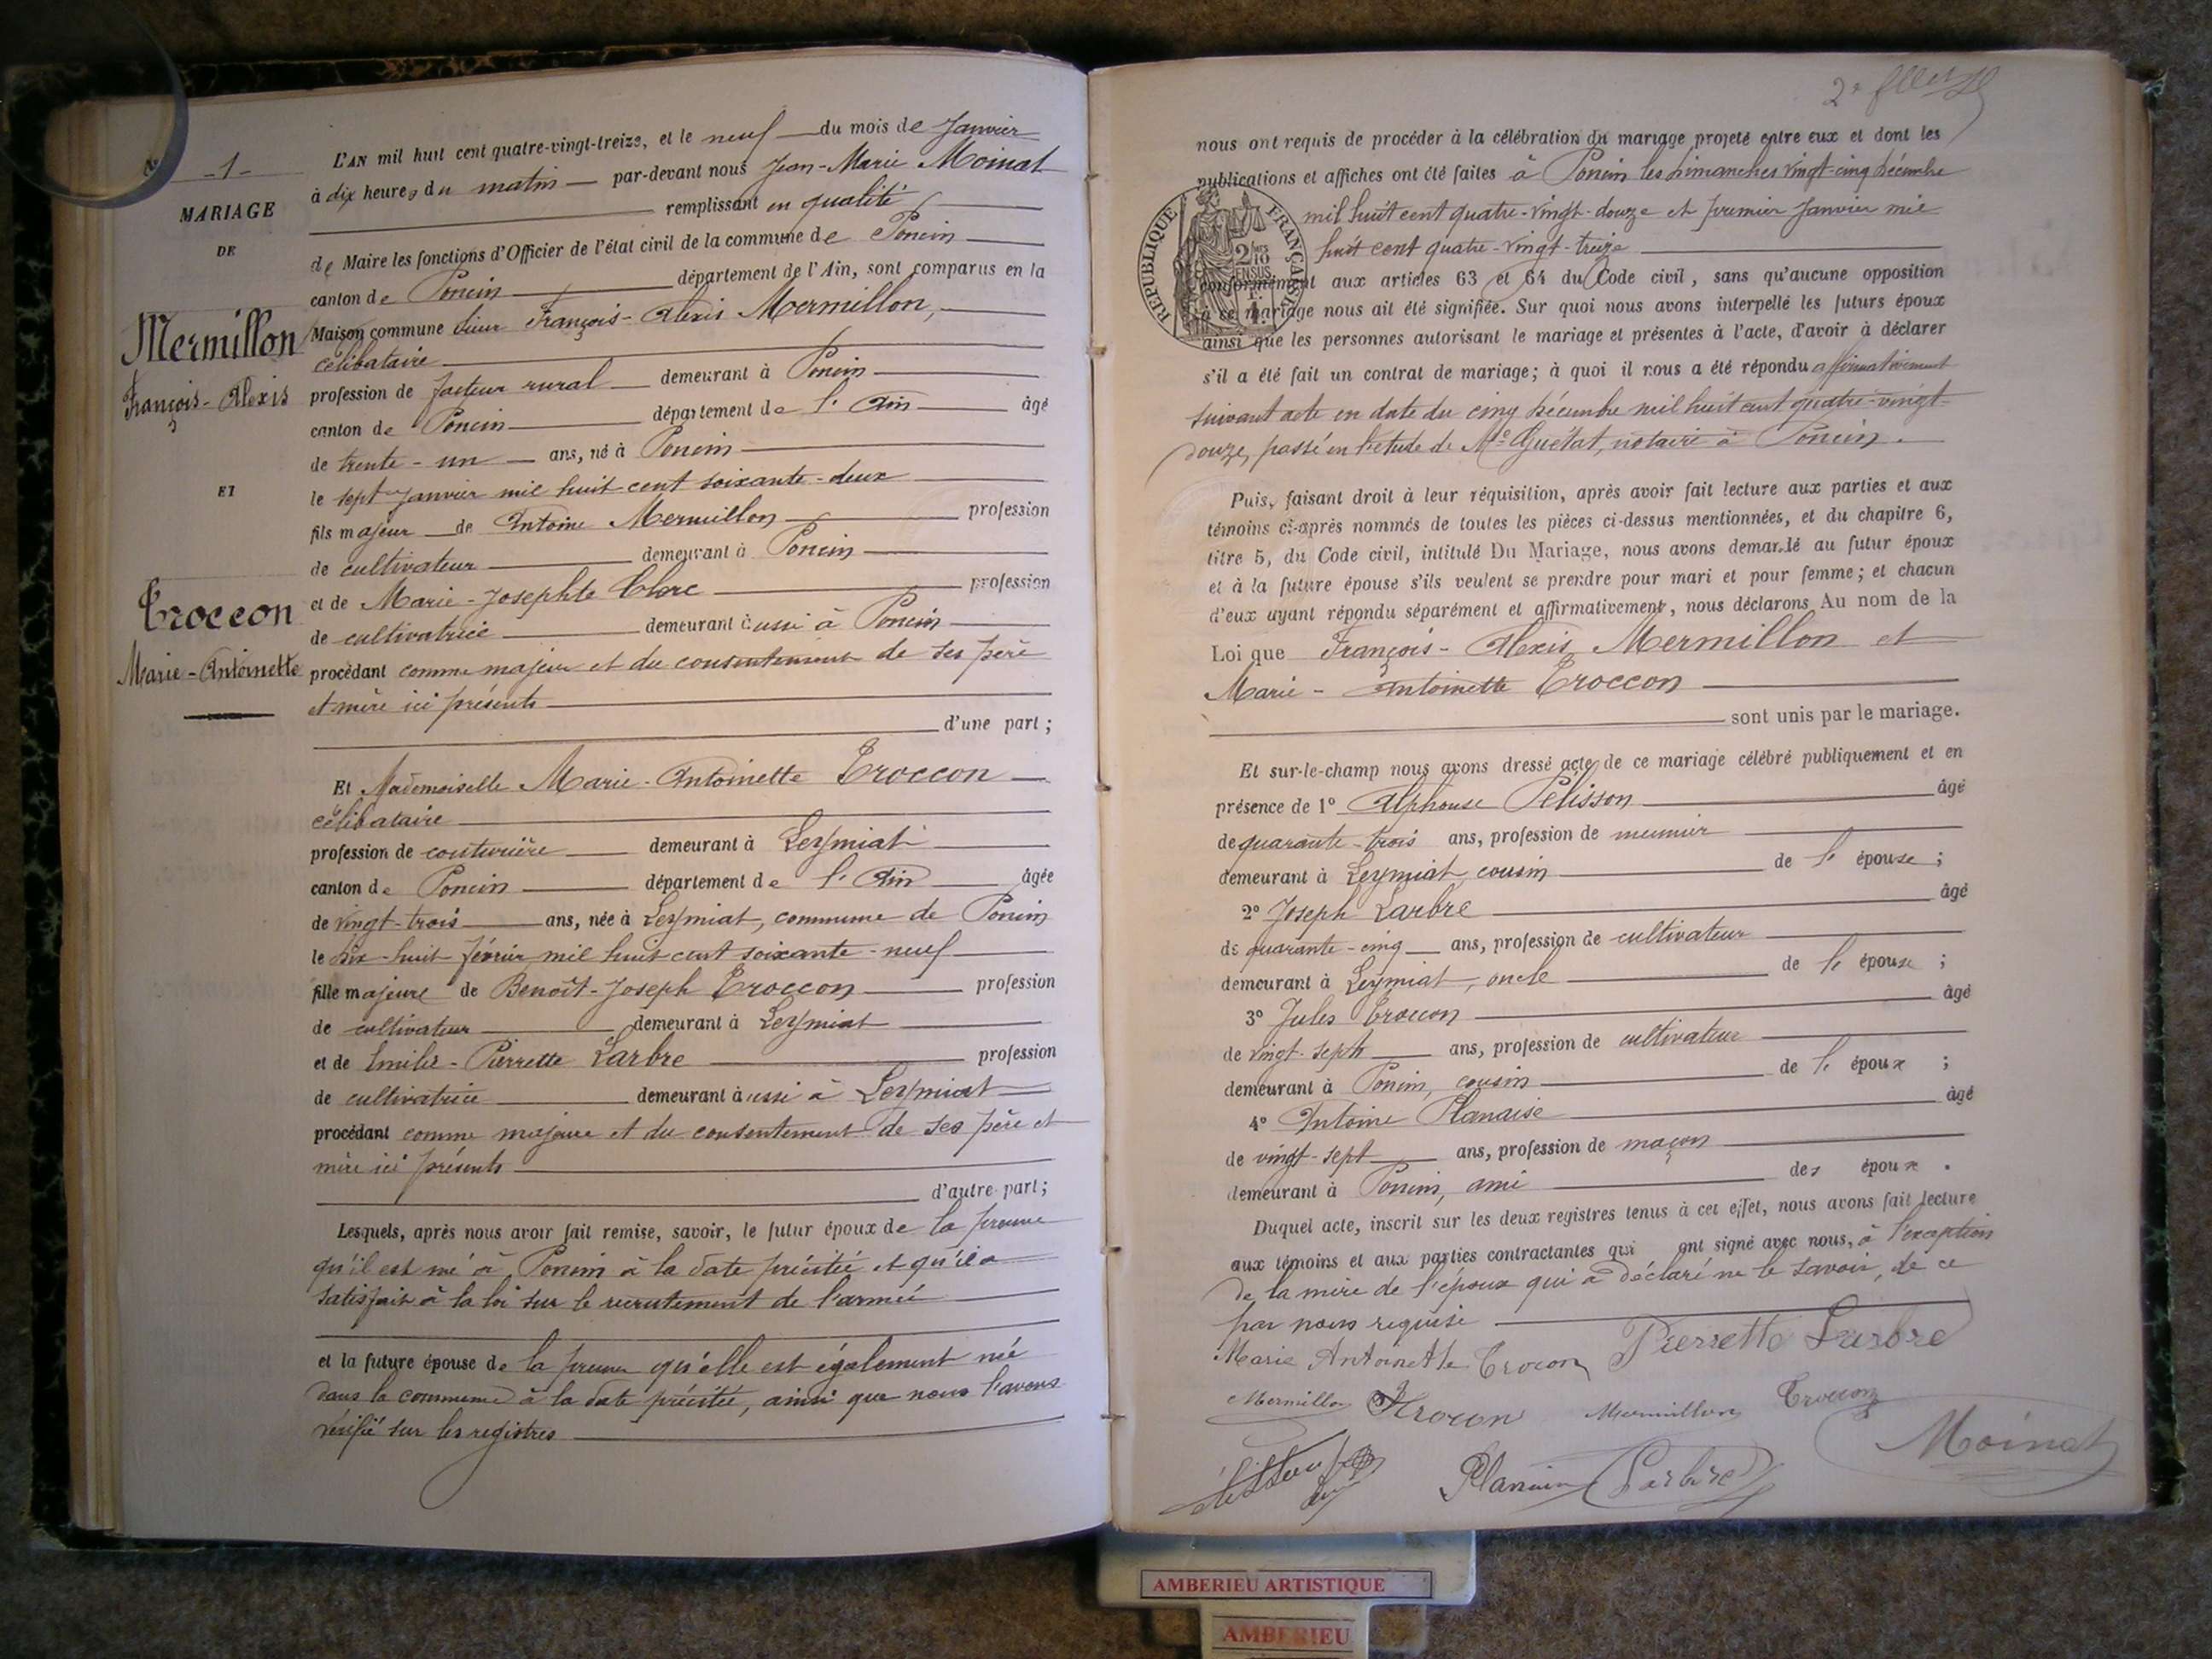 N° -1-
MARIAGE
DE
Mermillon
François-Alexis
ET
Troccon
Marie-Antoinette
L'AN mil huit cent quatre-vingt-treize, et le neuf du mois de Janvier
à dix heures du matin par-devant nous Jean-Marie Moinat
remplissant en qualité
de Maire les fonctions d'Officier de l'état civil de la commune de Poncin
canton de Poncin département de l'Ain, sont comparus en la
Maison commune Sieur François-Alexis Mermillon,
célibataire
profession de facteur rural demeurant à Poncin
canton de Poncin département de l'Ain âgé
de trente-un ans, né à Poncin
le sept Janvier mil huit cent soixante-deux
fils majeur de Antoine Mermillon profession
de cultivateur demeurant à Poncin
et de Marie-Josephte Clerc profession
de cultivatrice demeurant aussi à Poncin
procédant comme majeur et du consentement de ses père
et mère ici présents
d'une part ;
Et Mademoiselle Marie-Antoinette Troccon
célibataire
profession de couturière demeurant à Leymiat
canton de Poncin département de l'Ain âgée
de vingt-trois ans, née à Leymiat, commune de Poncin
le dix-huit février mil huit cent soixante-neuf
fille majeure de Benoît-Joseph Troccon profession
de cultivateur demeurant à Leymiat
et de Emilie-Pierrette Larbre profession
de cultivatrice demeurant aussi à Leymiat
procédant comme majeure et du consentement de ses père et
mère ici présents
d'autre part ;
Lesquels, après nous avoir fait remise, savoir, le futur époux de la preuve
qu'il est né à Poncin à la date précitée et qu'il a
satisfait à la loi sur le recrutement de l'armée
et la future épouse de la preuve qu'elle est également née
dans la commune à la date précitée, ainsi que nous l'avons
vérifié sur les registres
nous ont requis de procéder à la célébration du mariage projeté entre eux et dont les
publications et affiches ont été faites à Poncin les dimanches vingt-cinq décembre
mil huit cent quatre-vingt-douze et premier Janvier mil
huit cent quatre-vingt-treize
conformément aux articles 63 et 64 du Code civil, sans qu'aucune opposition
à ce mariage nous ait été signifiée. Sur quoi nous avons interpellé les futurs époux
ainsi que les personnes autorisant le mariage et présentes à l'acte, d'avoir à déclarer
s'il a été fait un contrat de mariage ; à quoi il nous a été répondu affirmativement
suivant acte en date du cinq décembre mil huit cent quatre-vingt-
douze, passé en l'étude de Me Guétat, notaire à Poncin.
Puis, faisant droit à leur réquisition, après avoir fait lecture aux parties et aux
témoins ci-après nommés de toutes les pièces ci-dessus mentionnées, et du chapitre 6,
titre 5, du Code civil, intitulé Du Mariage, nous avons demandé au futur époux
et à la future épouse s'ils veulent se prendre pour mari et pour femme ; et chacun
d'eux ayant répondu séparément et affirmativement, nous déclarons Au nom de la
Loi que François-Alexis Mermillon et
Marie-Antoinette Troccon
sont unis par le mariage.
Et sur-le-champ nous avons dressé acte de ce mariage célébré publiquement et en
présence de 1° Alphonse Pélisson âgé
de quarante-trois ans, profession de meunier
demeurant à Leymiat, cousin de l'épouse ;
2° Joseph Larbre âgé
de quarante-cinq ans, profession de cultivateur
demeurant à Leymiat, oncle de l'épouse ;
3° Jules Troccon âgé
de vingt-sept ans, profession de cultivateur
demeurant à Poncin, cousin de l'époux ;
4° Antoine Planaise âgé
de vingt-sept ans, profession de maçon
demeurant à Poncin, ami des époux .
Duquel acte, inscrit sur les deux registres tenus à cet effet, nous avons fait lecture
aux témoins et aux parties contractantes qui ont signé avec nous, à l'exception
de la mère de l'époux qui a déclaré ne le savoir, de ce
par nous requise
Marie Antoinette Trocon Pierrette Larbre
Mermillon Trocon Mermillon Troccon
Larbre Moinat
REPUBLIQUE FRANÇAISE
AMBERIEU ARTISTIQUE
AMBERIEU